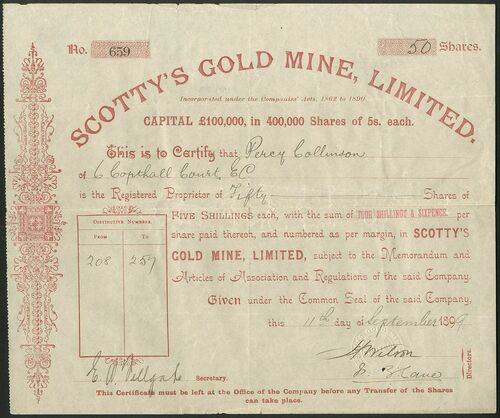 No. 659
50 Shares.
SCOTTY'S GOLD MINE, LIMITED.
Incorporated under the Companies' Acts, 1862 to 1890.
CAPITAL £100,000, in 400,000 Shares of 5s. each.
This is to Certify that Percy Collinson
of 6 Copthall Court, EC
is the Registered Proprietor of Fifty Shares of
FIVE SHILLINGS each, with the sum of FOUR SHILLINGS & SIXPENCE. per
share paid thereon, and numbered as per margin, in SCOTTY'S
GOLD MINE, LIMITED, subject to the Memorandum and
Articles of Association and Regulations of the said Company.
Given under the Common Seal of the said Company,
this 11th day of September 1899
DISTINCTIVE NUMBERS.
FROM TO
208 257
Wilson
Directors.
Secretary.
This Certificate must be left at the Office of the Company before any Transfer of the Shares
can take place.